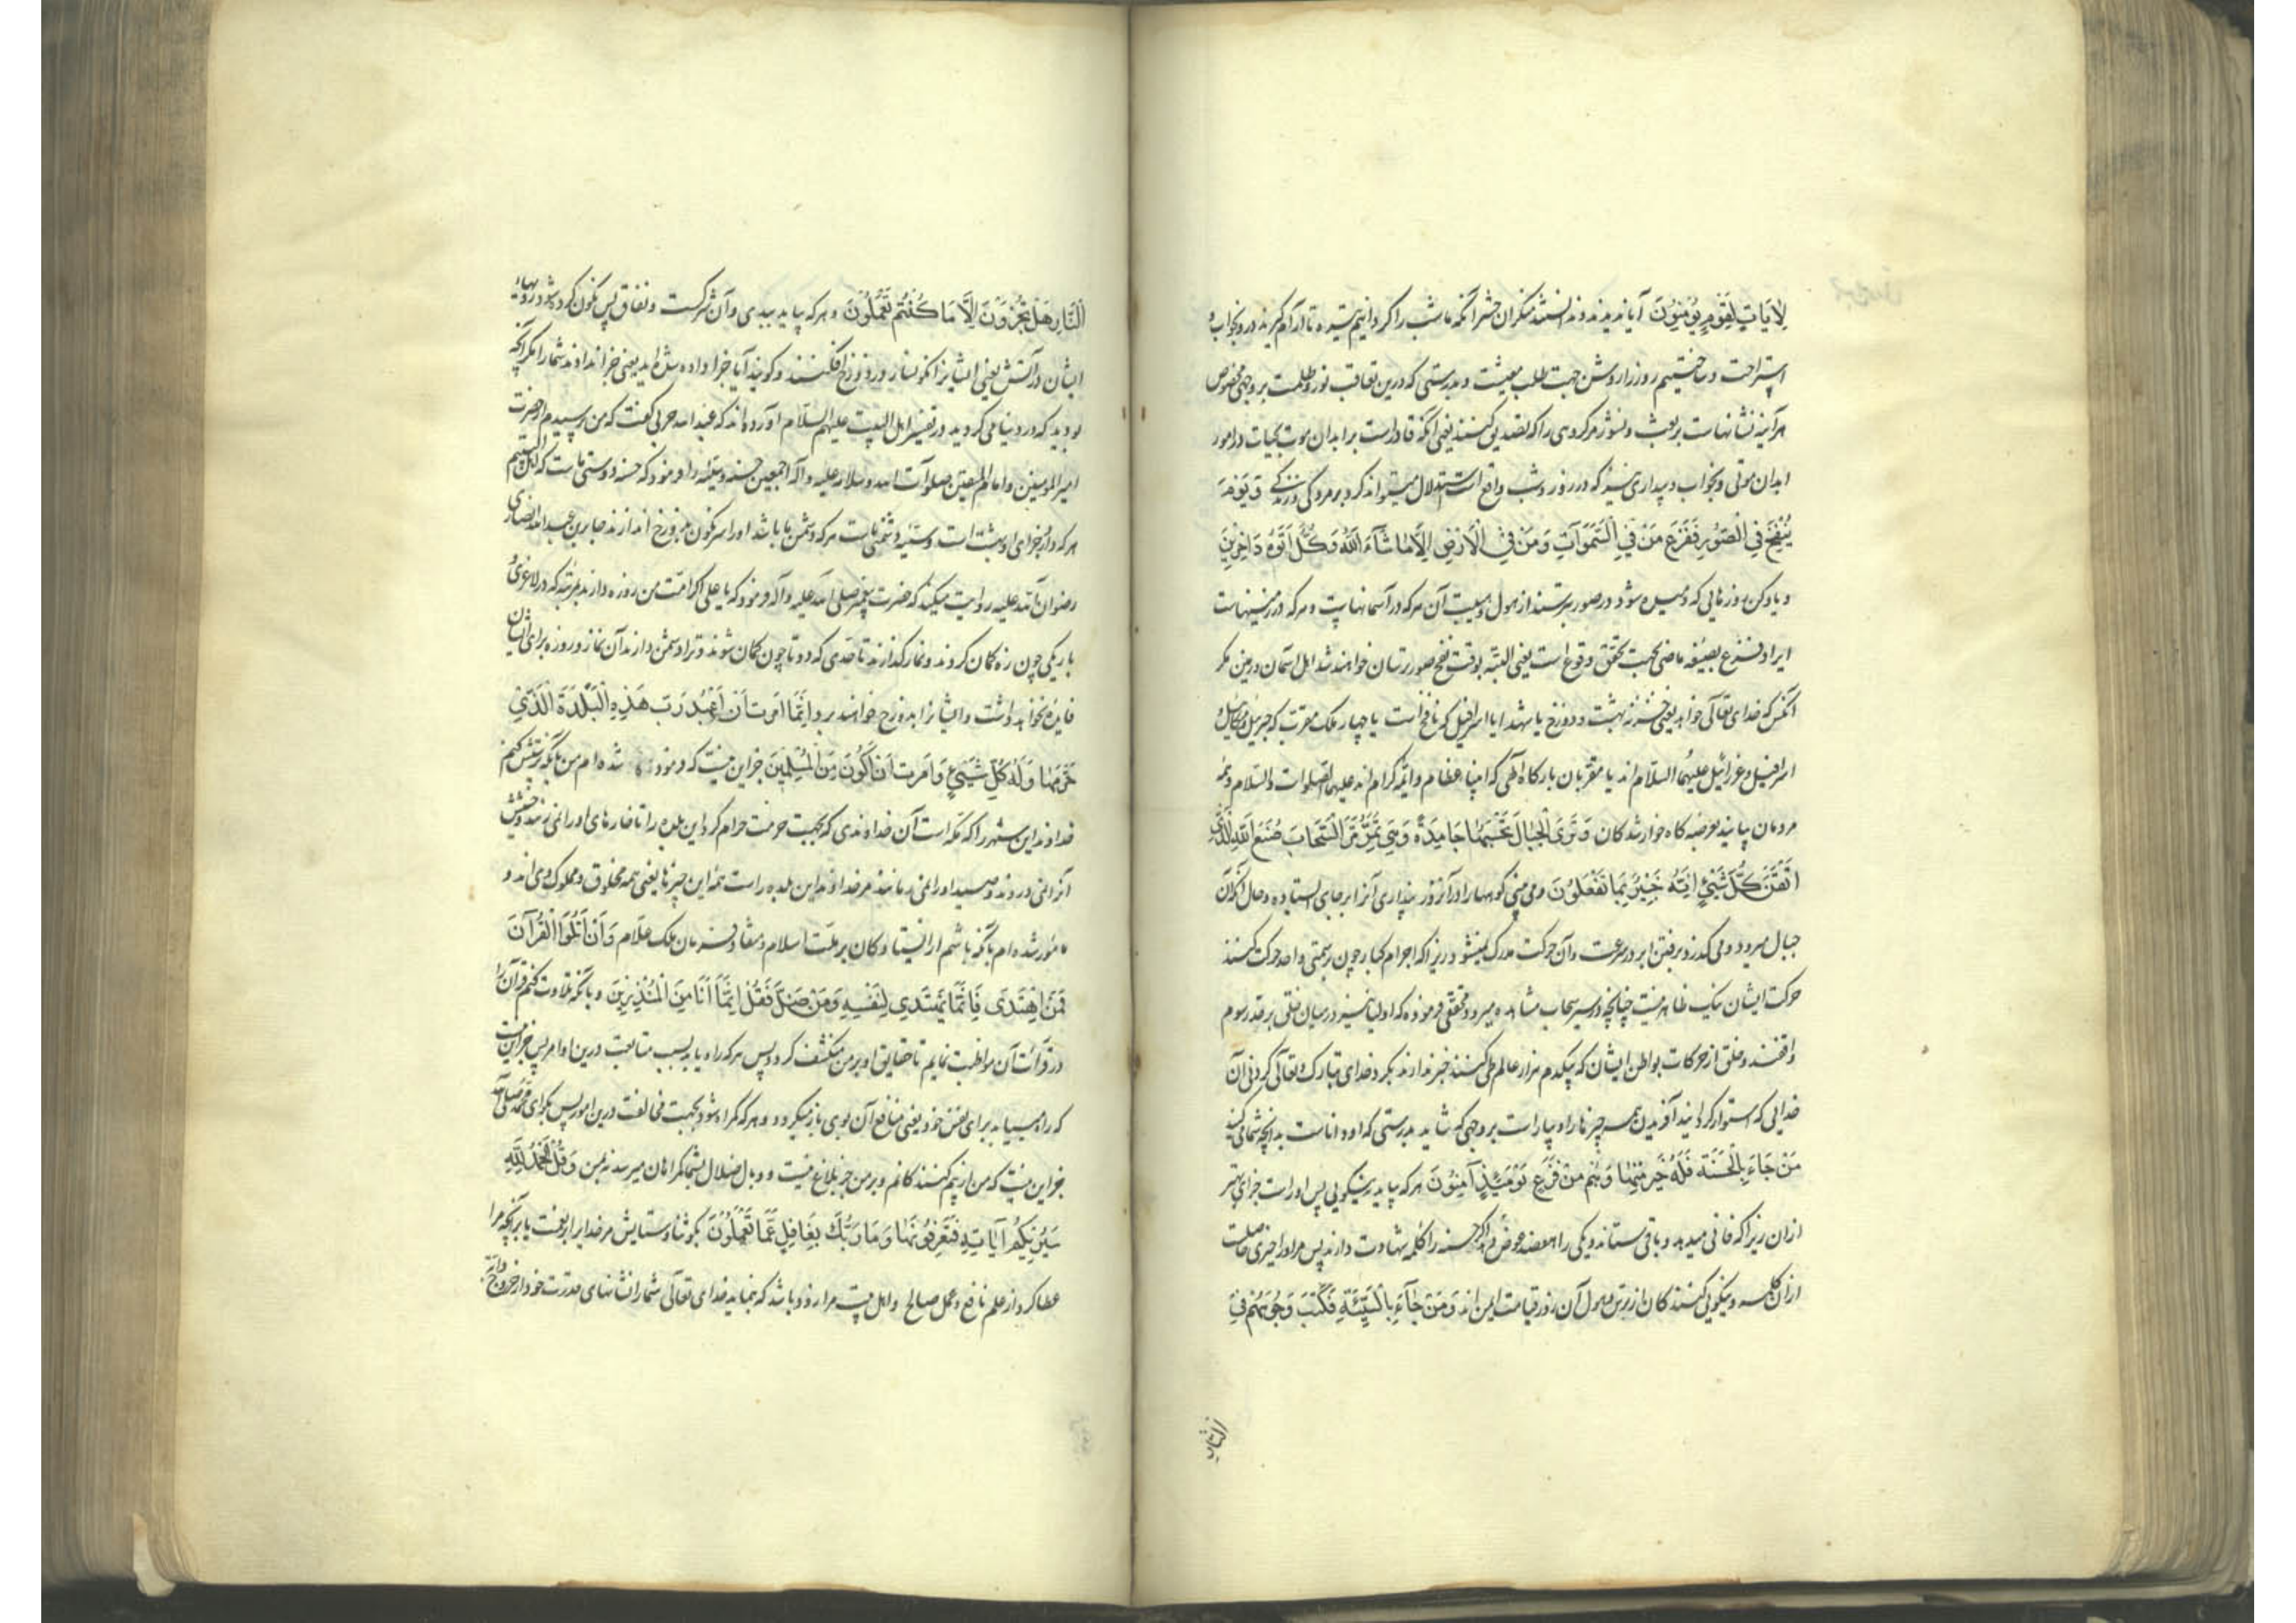 لَآيَاتٍ لِقَوْمٍ يُؤْمِنُونَ آیا ندیدند و ندانستند منکران حشر آنکه ما شب را کردانیدیم تیره تا آرام کیرند در و بخواب و
استراحت و ساختیم روز را روشن جهت طلب معیشت و بدرستی که درین تعاقب نور و ظلمت بر وجهی مخصوص
هر آینه نشانهاست بر بعث و نشور مر کروهی را که تصدیق کنند یعنی آنکه قادر است بر ابدان موت بحیات در امور
ابدان موتی و بخواب و بیداری نیز که در روز و شب واقع است استدلال میتواند کرد بر مردکی و زندکی وَيَوْمَ
يُنْفَخُ فِي الصُّورِ فَفَزِعَ مَنْ فِي السَّمَوَاتِ وَمَنْ فِي الْأَرْضِ إِلَّا مَا شَاءَ اللَّهُ وَكُلٌّ أَتَوْهُ دَاخِرِينَ
و یاد کن روزهایی که دمیده شود در صور بترسند از هول و هیبت آن هر که در آسمانهاست و هر که در زمینهاست
ایراد فزع بصیغه ماضی بجهت تحقق وقوع است یعنی البته بوقت نفخ صور ترسان خواهند شد اهل آسمان و زمین مکر
آنکس که خدای تعالی خواهد یعنی خزنه بهشت و دوزخ یا شهدا یا اسرافیل که نافخ است یا چهار ملک مقرب که جبرئیل و میکائیل و
اسرافیل و عزرائیل علیهم السلام اند یا مقربان بارکاه الهی که انبیاء عظام و ائمه کرام اند علیهم الصلوات والسلام و همه
مردمان بیایند بعرضه کاه خوار شدکان وَتَرَى الْجِبَالَ تَحْسَبُهَا جَامِدَةً وَهِيَ تَمُرُّ مَرَّ السَّحَابِ صُنْعَ اللَّهِ الَّذِي
أَتْقَنَ كُلَّ شَيْءٍ إِنَّهُ خَبِيرٌ بِمَا تَفْعَلُونَ و می بینی کوهها را در آنروز پنداری آنرا بر جای ایستاده و حال آنکه آن
جبال میرود و می کذرد برفتن ابر در سرعت و آن حرکت مدرک نمیشود زیرا که اجرام کبار چون بر سمتی واحد حرکت کنند
حرکت ایشان نیک ظاهر نیست چنانچه در سیر سحاب مشاهده میرود و محققی فرموده که اولیا نیز در میان خلق بر قدر سوم
واقفند و خلق از حرکات بواطن ایشان که بیکدم هزار عالم طی کنند خبر ندارند بکرد خدای تبارک و تعالی کردنی آن
خدایی که استوار کردانید آفریدن همه چیزها را و بیاراست بر وجهی که شاید بدرستی که او داناست بدانچه شما می کنید
مَنْ جَاءَ بِالْحَسَنَةِ فَلَهُ خَيْرٌ مِنْهَا وَهُمْ مِنْ فَزَعٍ يَوْمَئِذٍ آمِنُونَ هر که بیاید بنیکویی پس او راست جزای بهتر
از آن زیرا که فانی میدهد و باقی ستاند و یکی را هفتصد عوض و اکر حسنه را کلمه شهادت دارند پس مر او را خیری حاصلست
از آن کلمه و نیکویی کنندکان از ترس و هول آن روز قیامت ایمن اند وَمَنْ جَاءَ بِالسَّيِّئَةِ فَكُبَّتْ وُجُوهُهُمْ فِي
النَّارِ
النَّارِ هَلْ تُجْزَوْنَ إِلَّا مَا كُنْتُمْ تَعْمَلُونَ و هر که بیاید ببدی و آن شرکست و نفاق پس نکون کرده شود رویهای
ایشان در آتش یعنی ایشانرا نکونسار در دوزخ افکنند و کویند آیا جزا داده شده اید یعنی جزا نداوند شما را مکر آنکه
بودید که در دنیا می کردید در تفسیر اهل البیت علیهم السلام آورده اند که عبد الله حربی کفت که من پرسیدم از حضرت
امیر المومنین و امام المتقین صلوات الله و سلامه علیه و آله اجمعین حسنه و سیئه را فرمود که حسنه دوستی ماست که اهل بیتیم
هر که دارد جزای او بهشت است و سیئه دشمنی ماست هر که دشمن ما باشد او را سرنکون بدوزخ اندازند جابر بن عبد الله انصاری
رضوان الله علیه روایت میکند که حضرت پیغمبر صلی الله علیه و آله فرمود که یا علی اکر امت من روزه دارند بمرتبه که در لاغری و
باریکی چون زه کمان کردند و نماز کذارند تا حدی که دوتا چون کمان شوند و ترا دشمن دارند آن نماز و روزه برای ایشان
فایده نخواهد داشت و ایشانرا بدوزخ خواهند برد إِنَّمَا أُمِرْتُ أَنْ أَعْبُدَ رَبَّ هَذِهِ الْبَلْدَةِ الَّذِي
حَرَّمَهَا وَلَهُ كُلُّ شَيْءٍ وَأُمِرْتُ أَنْ أَكُونَ مِنَ الْمُسْلِمِينَ جز این نیست که فرموده شده ام من بآنکه پرستش کنم
خداوند این شهر را که مکه است آن خداوندی که بجهت حرمت حرام کرد این بلده را تا خارهای او را نمی زنند و حشیش
آنرا نمی دروند و صید او را نمی رمانند مر خداوند این بلده راست همه این چیزها یعنی همه مخلوق و مملوک وی اند و
مامور شده ام بآنکه باشم از ایستادکان بر ملت اسلام و منقاد فرمان ملک علام وَأَنْ أَتْلُوَا الْقُرْآنَ
فَمَنِ اهْتَدَى فَإِنَّمَا يَهْتَدِي لِنَفْسِهِ وَمَنْ ضَلَّ فَقُلْ إِنَّمَا أَنَا مِنَ الْمُنْذِرِينَ و بآنکه تلاوت کنم قرآن را
در قرائت آن مواظبت نمایم تا حقایق او بر من منکشف کردد پس هر که راه یابد بسبب متابعت درین اوامر پس جز این نیست
که راه می یابد برای نفس خود یعنی منافع آن بوی باز میکردد و هر که کمراه شود بجهت مخالفت درین امور پس بکو ای محمد صلی الله
جز این نیست که من از بیم کنندکانم و بر من جز بلاغ نیست و وبال ضلال بشما کمراهان میرسد نه بمن وَقُلِ الْحَمْدُ لِلَّهِ
سَيُرِيكُمْ آيَاتِهِ فَتَعْرِفُونَهَا وَمَا رَبُّكَ بِغَافِلٍ عَمَّا تَعْمَلُونَ بکو ثنا و ستایش مر خدایرا بر نعمت یا بر آنچه مرا
عطا کرد از علم نافع و عمل صالح و اهل بیت مرا و زود باشد که بنماید خدای تعالی شما را نشانهای قدرت خود از خروج دابة